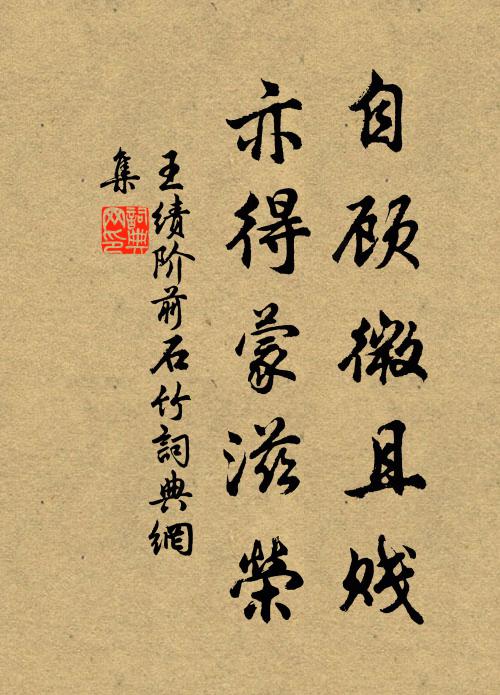 自顾微且贱
亦得蒙滋榮
王绩阶前石竹詞典網
集
詞典网印